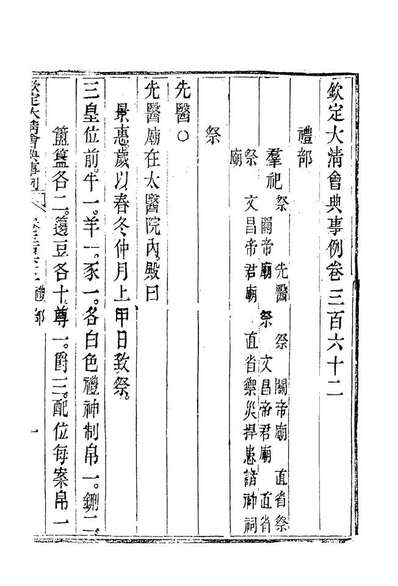 欽定大清會典事例卷三百六十二
禮部
羣祀 祭 先醫 祭 關帝廟 直省祭
關帝廟 祭 文昌帝君廟 直省
祭 文昌帝君廟 直省禦災捍患諸神祠
廟
祭
先醫〇
先醫廟在太醫院內殿曰
景惠歲以春冬仲月上甲日致祭。
三皇位前。牛一。羊一。豕一。各白色禮神制帛一。鉶二。
簠簋各二。籩豆各十。尊一。爵三。配位每案帛一
欽定大清會典事例 禮部 一